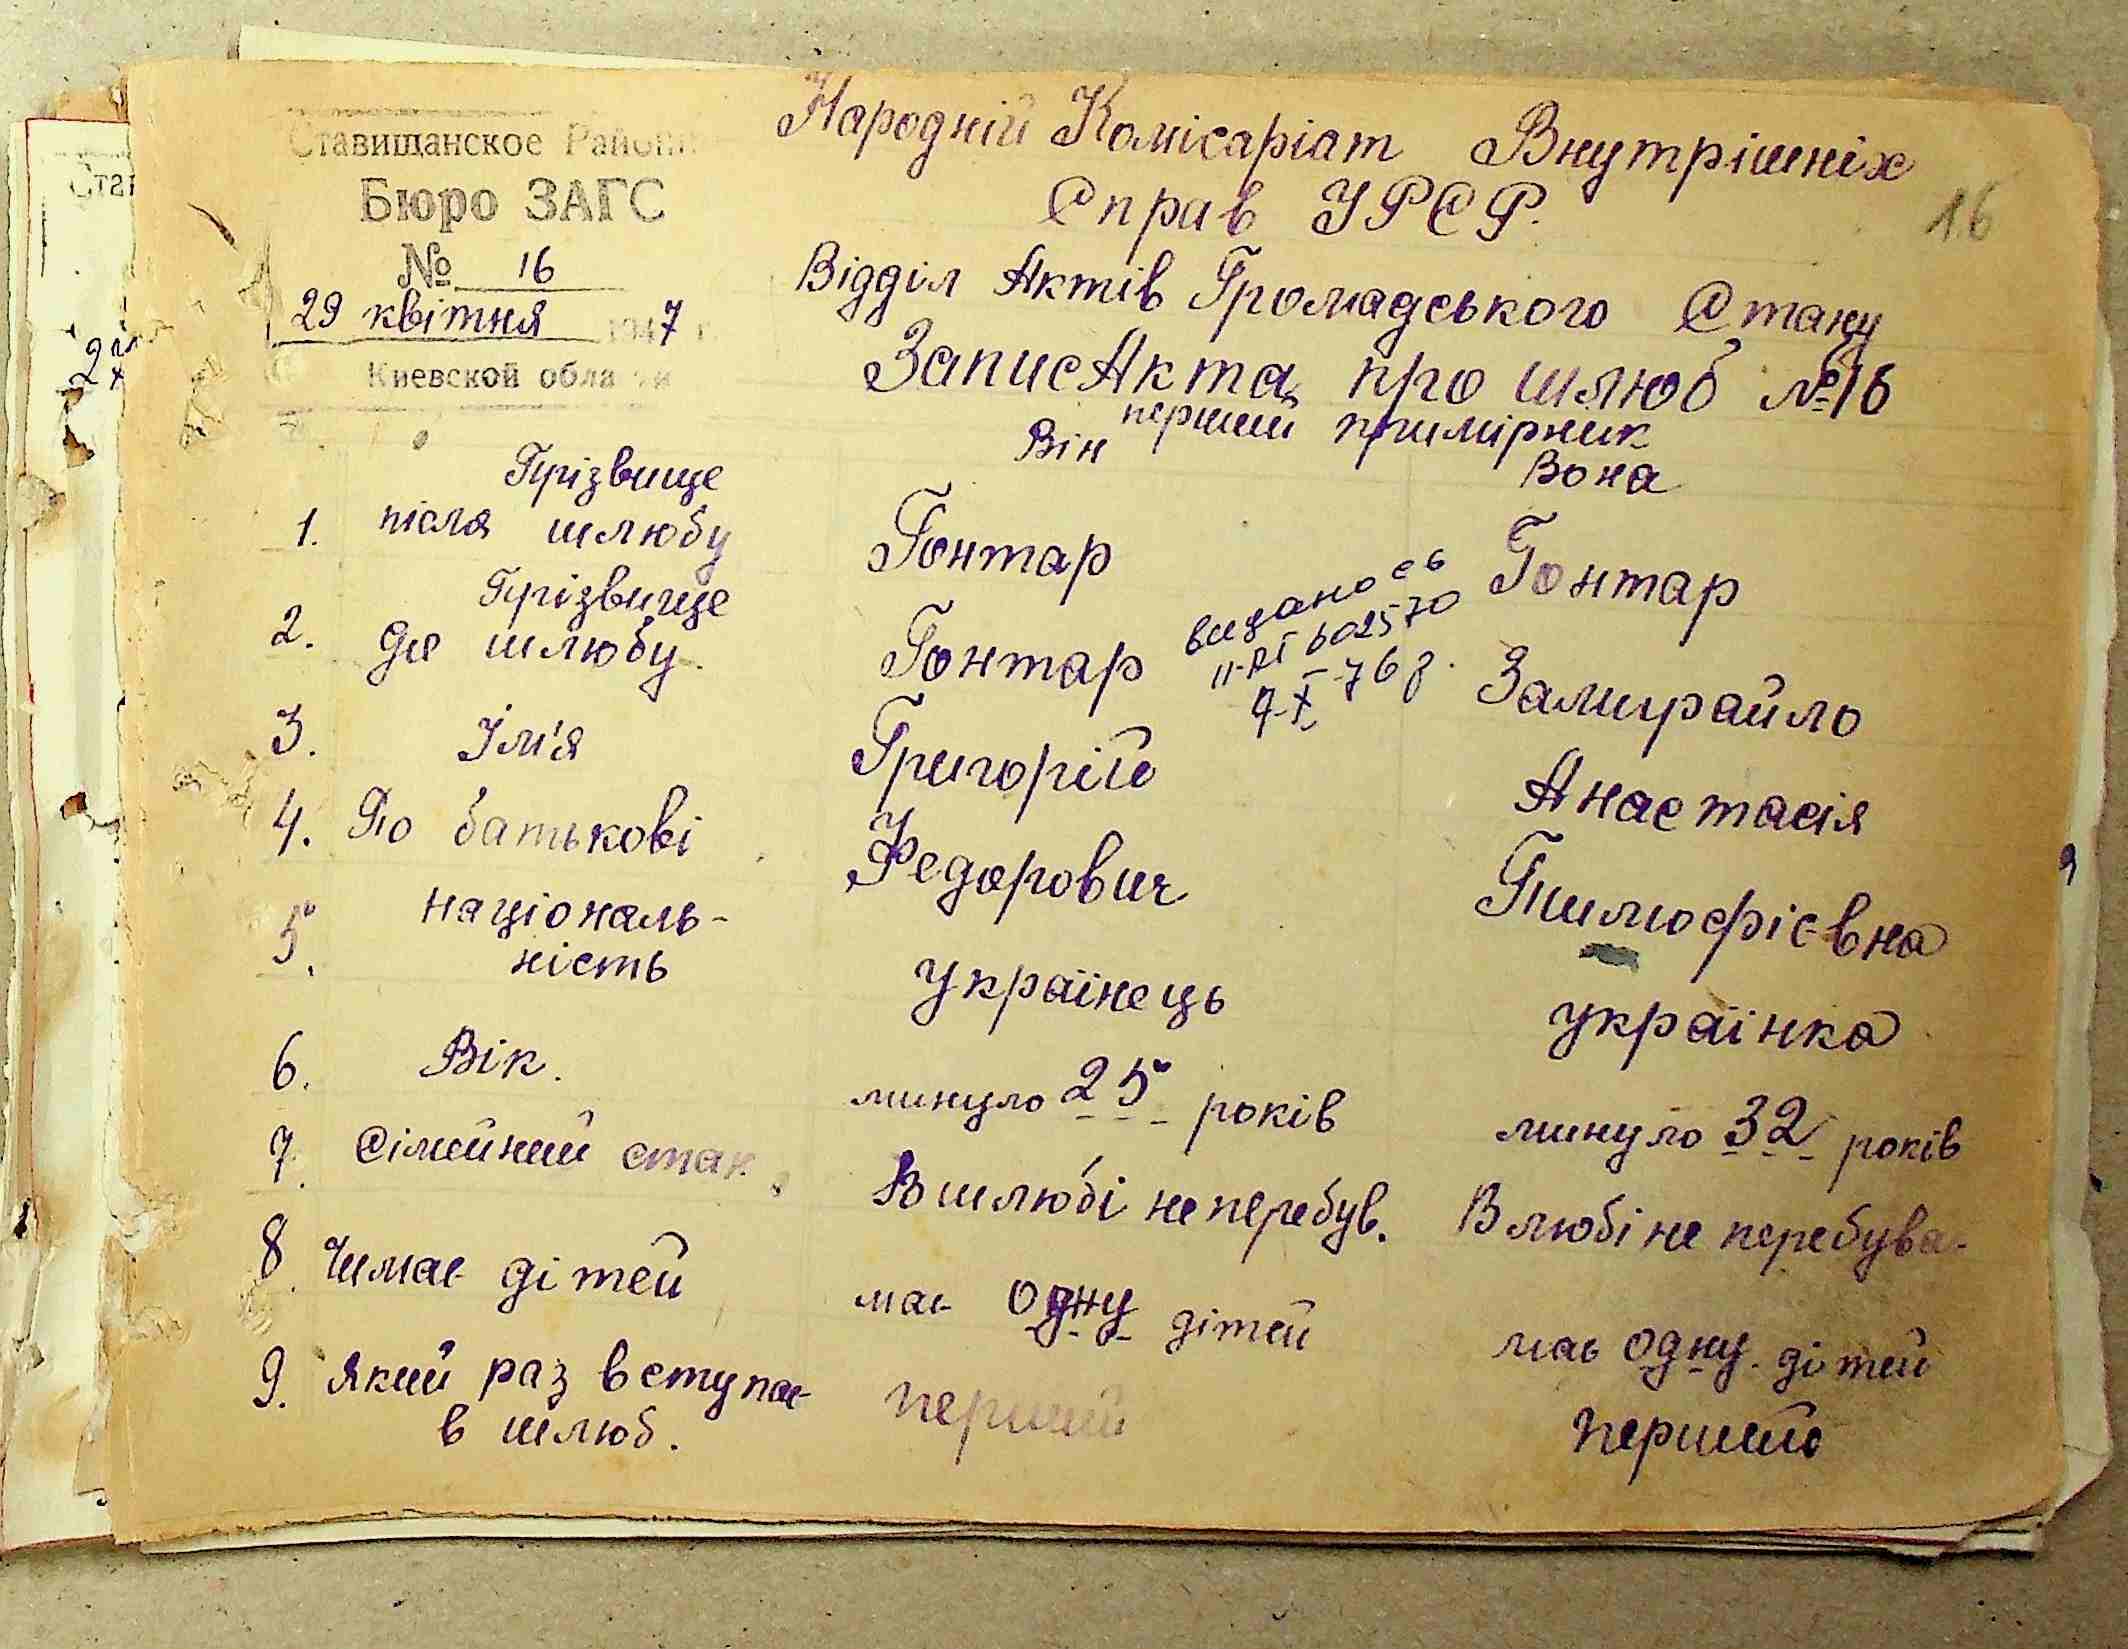 Ставищанское
Бюро ЗАГС
№ 16
29 квітня 1947 г.
Киевской
Народній Комісаріат Внутрішніх
Справ УРСР.
16
Відділ Актів Громадського Стану
Запис Акта про шлюб №16
перший примірник
Він Вона
1. Прізвище після шлюбу Гонтар Гонтар
2. Прізвище до шлюбу. Гонтар Замирайло
видано св
602570
3. Ім'я Григорій Анастасія
4. По батькові Федорович Тимофієвна
5. національ-
ність українець українка
6. Вік. минуло 25 років минуло 32 років
7. Сімейний стан В шлюбі не перебув. В любі не перебува-
8 Чи має дітей має одну дітей має одну дітей
9. Який раз вступає перший перший
в шлюб.